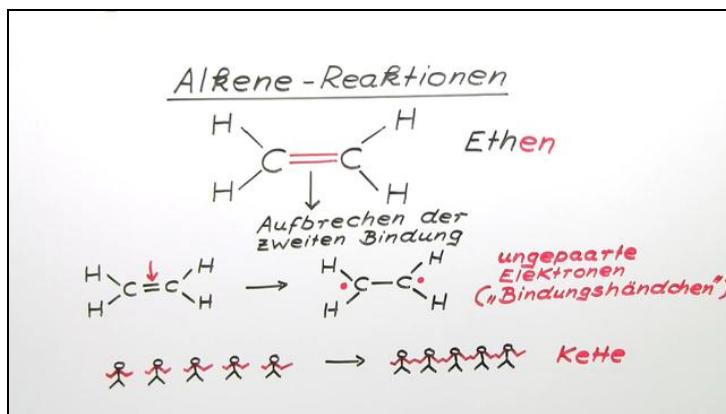 Alkene - Reaktionen
H H
C C Ethen
H H
Aufbrechen der
zweiten Bindung
H H
C=C
H H
H H
C-C
H H
ungepaarte
Elektronen
("Bindungshändchen")
Kette